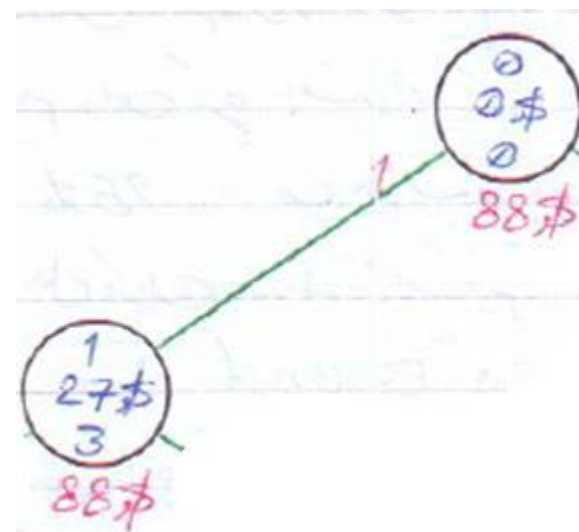 0
0$
0
88$
1
1
27$
3
88$